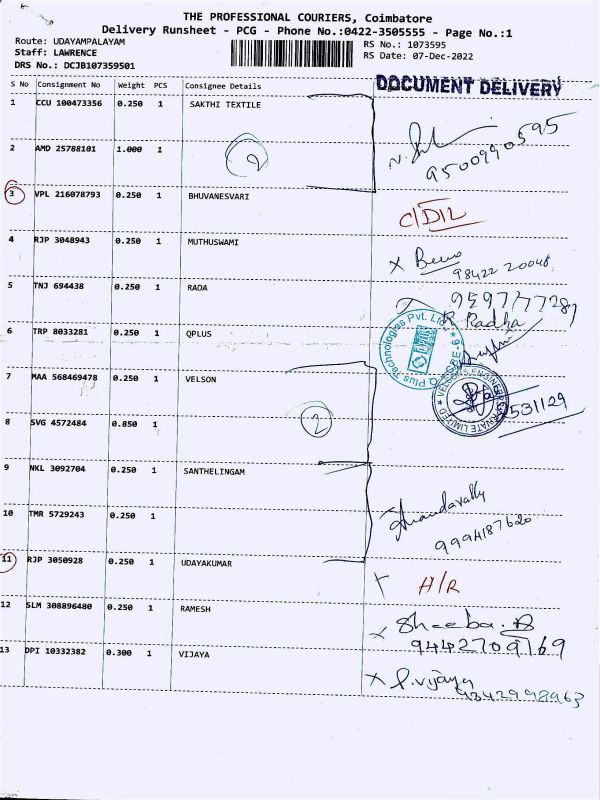 THE PROFESSIONAL COURIERS, Coimbatore
Delivery Runsheet - PCG - Phone No.:0422-3505555 - Page No.:1
Route: UDAYAMPALAYAM
RS No.: 1073595
Staff: LAWRENCE
RS Date: 07-Dec-2022
DRS No.: DCJB107359501
DOCUMENT DELIVERY
S No Consignment No Weight PCS Consignee Details
1 CCU 100473356 0.250 1 SAKTHI TEXTILE
9500990595
2 AMD 25788101 1.000 1
2
3 VPL 216078793 0.250 1 BHUVANESVARI
C/DIL
4 RJP 3048943 0.250 1 MUTHUSWAMI
98422 20048
5 TNJ 694438 0.250 1 RADA
9597177281
R. Radha
6 TRP 8033281 0.250 1 QPLUS
Q Plus Technologies Pvt. Ltd
7 MAA 568469478 0.250 1 VELSON
2531129
8 SVG 4572484 0.850 1
2
9 NKL 3092704 0.250 1 SANTHELINGAM
10 TMR 5729243 0.250 1
9994187620
11 RJP 3050928 0.250 1 UDAYKUMAR
H/R
12 SLM 308896480 0.250 1 RAMESH
x Sheeba. B
9442709169
13 DPI 10332382 0.300 1 VIJAYA
x P. Vijaya
9342998963